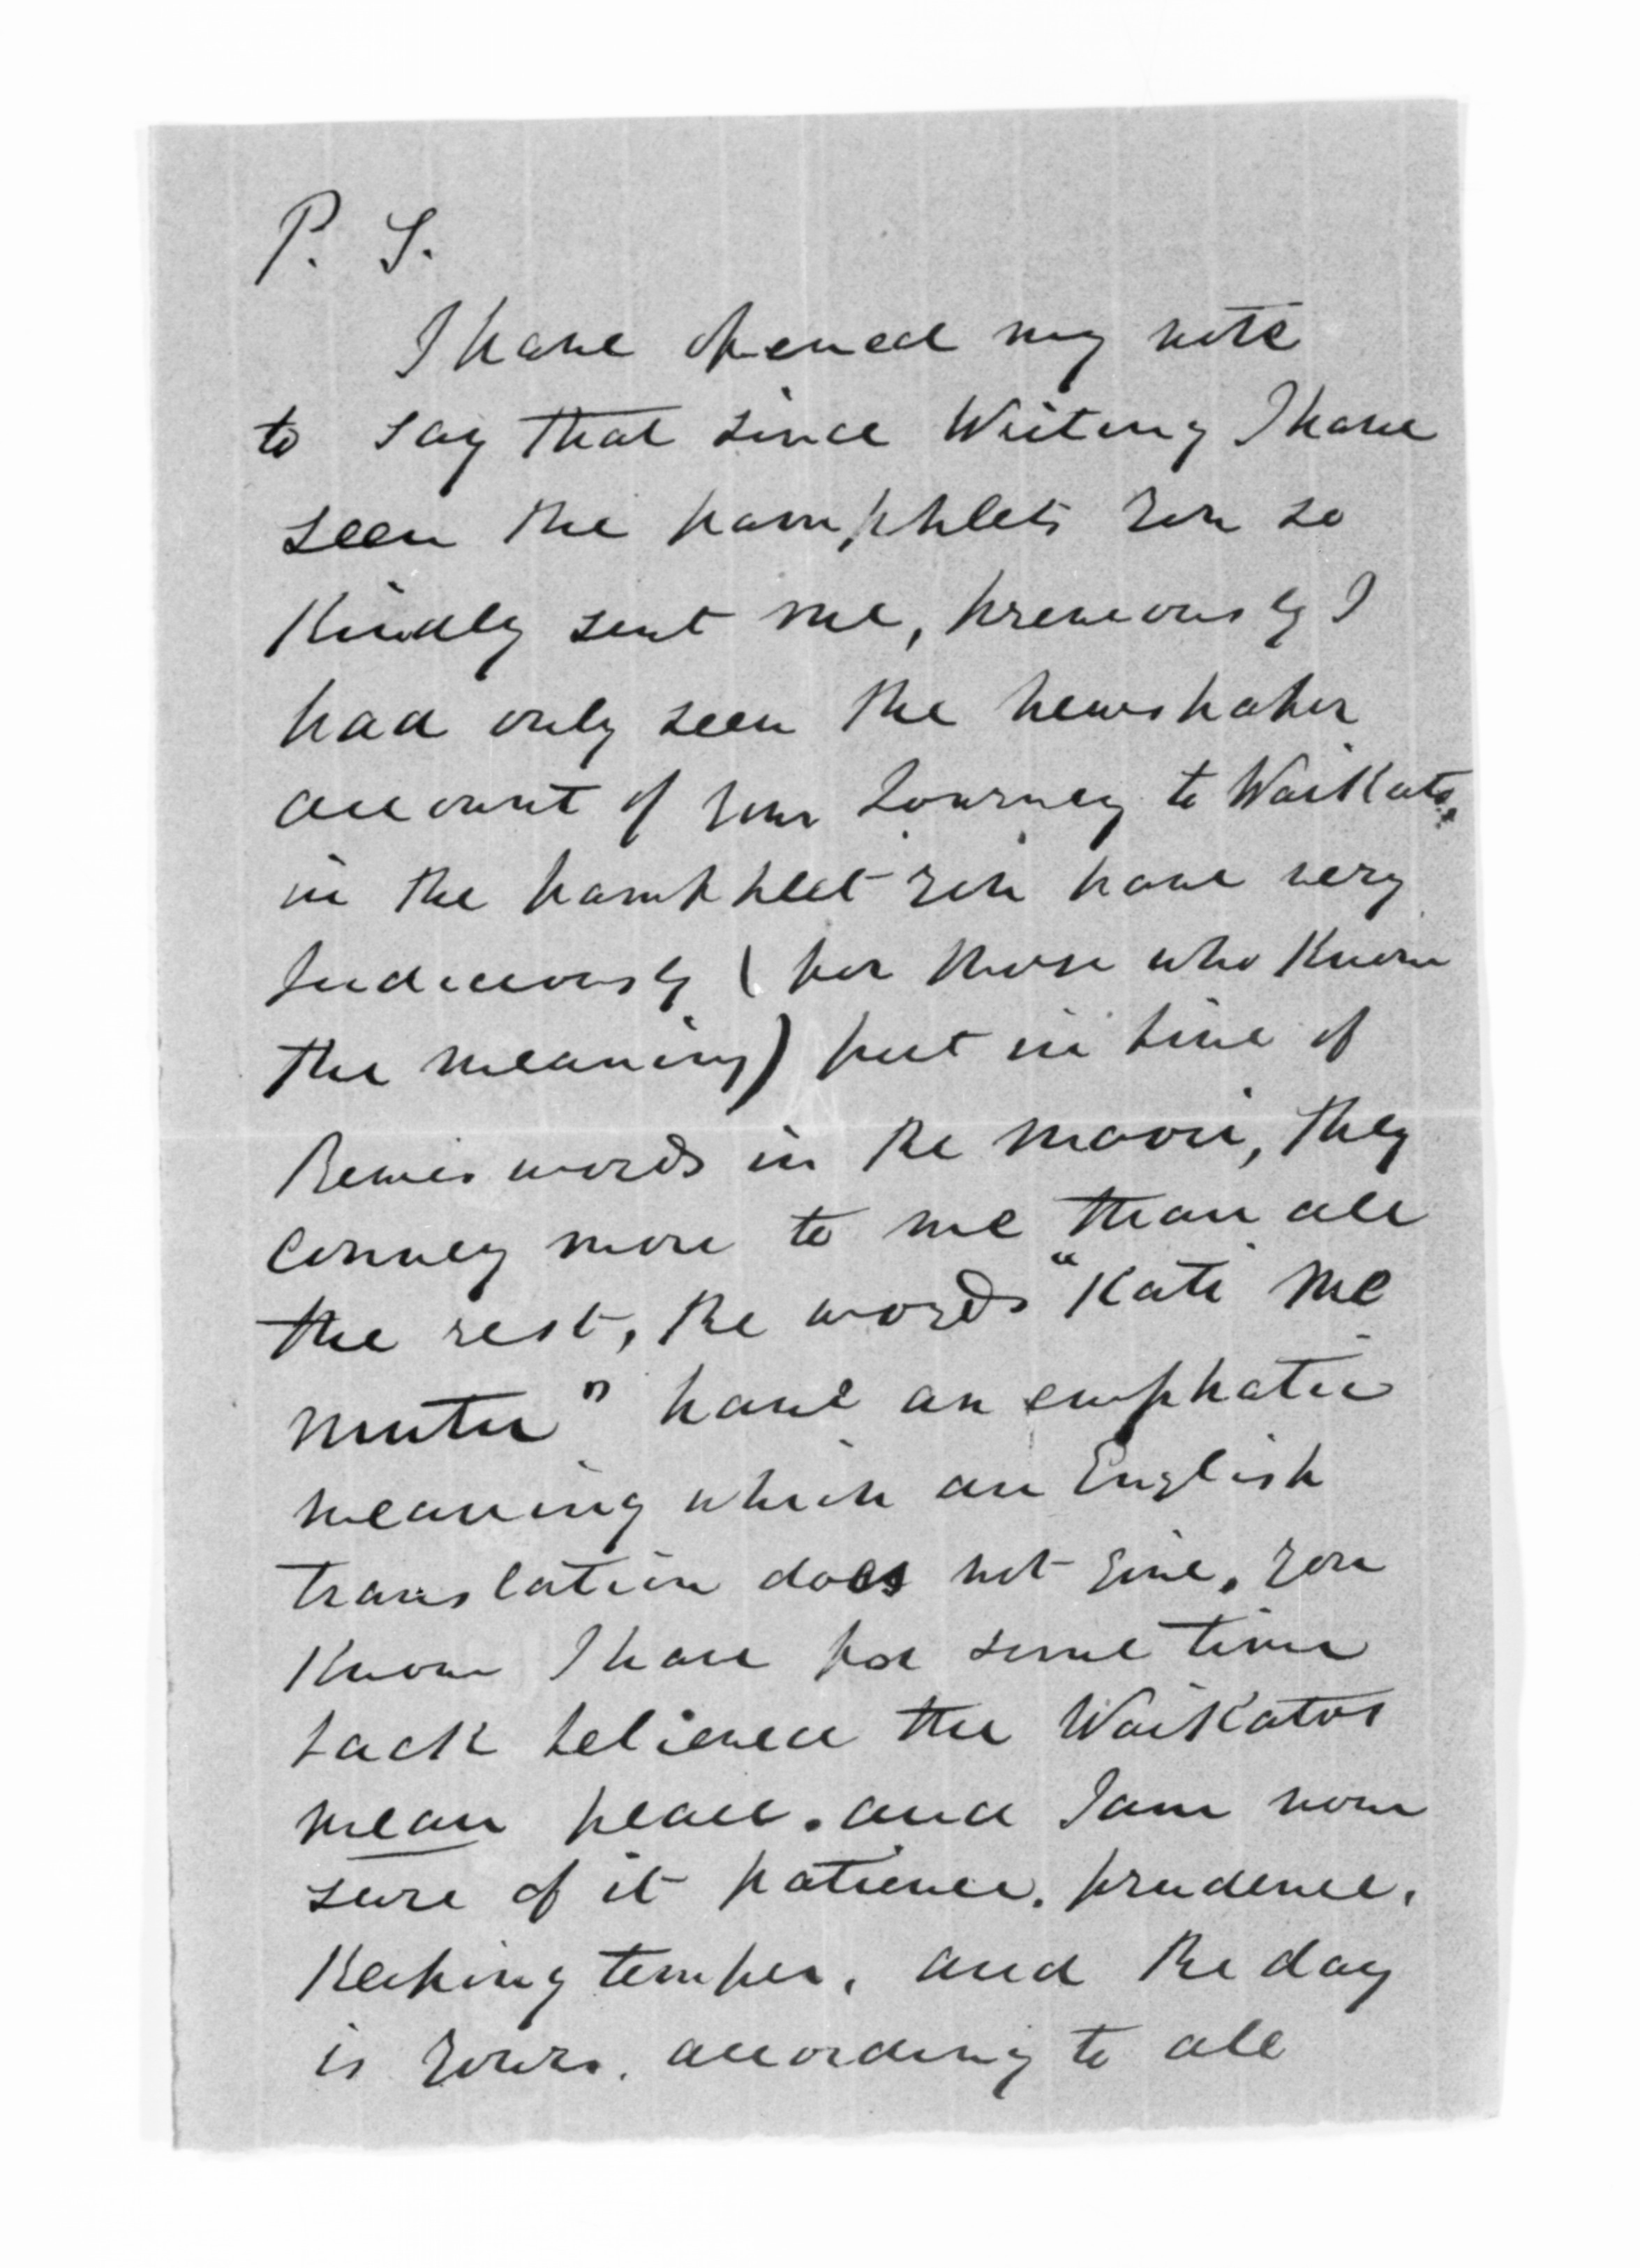 P. S.
I have opened my note
to say that since Writing I have
seen the pamphlets you so
Kindly sent me, previously I
had only seen the newspaper
account of your Journey to Waikato,
in the pamphlet you have very
Judiciously (for those who Know
the meaning) put in time of
Rewis words in the maori, they
convey more to me than all
the rest, the words "Kati me
mutu" have an emphatic
meaning which an English
translation does not give, you
Know I have for some time
back believed the Waikatos
mean peace. and I am now
sure of it patience. prudence.
Keeping temper, and the day
is yours. according to all